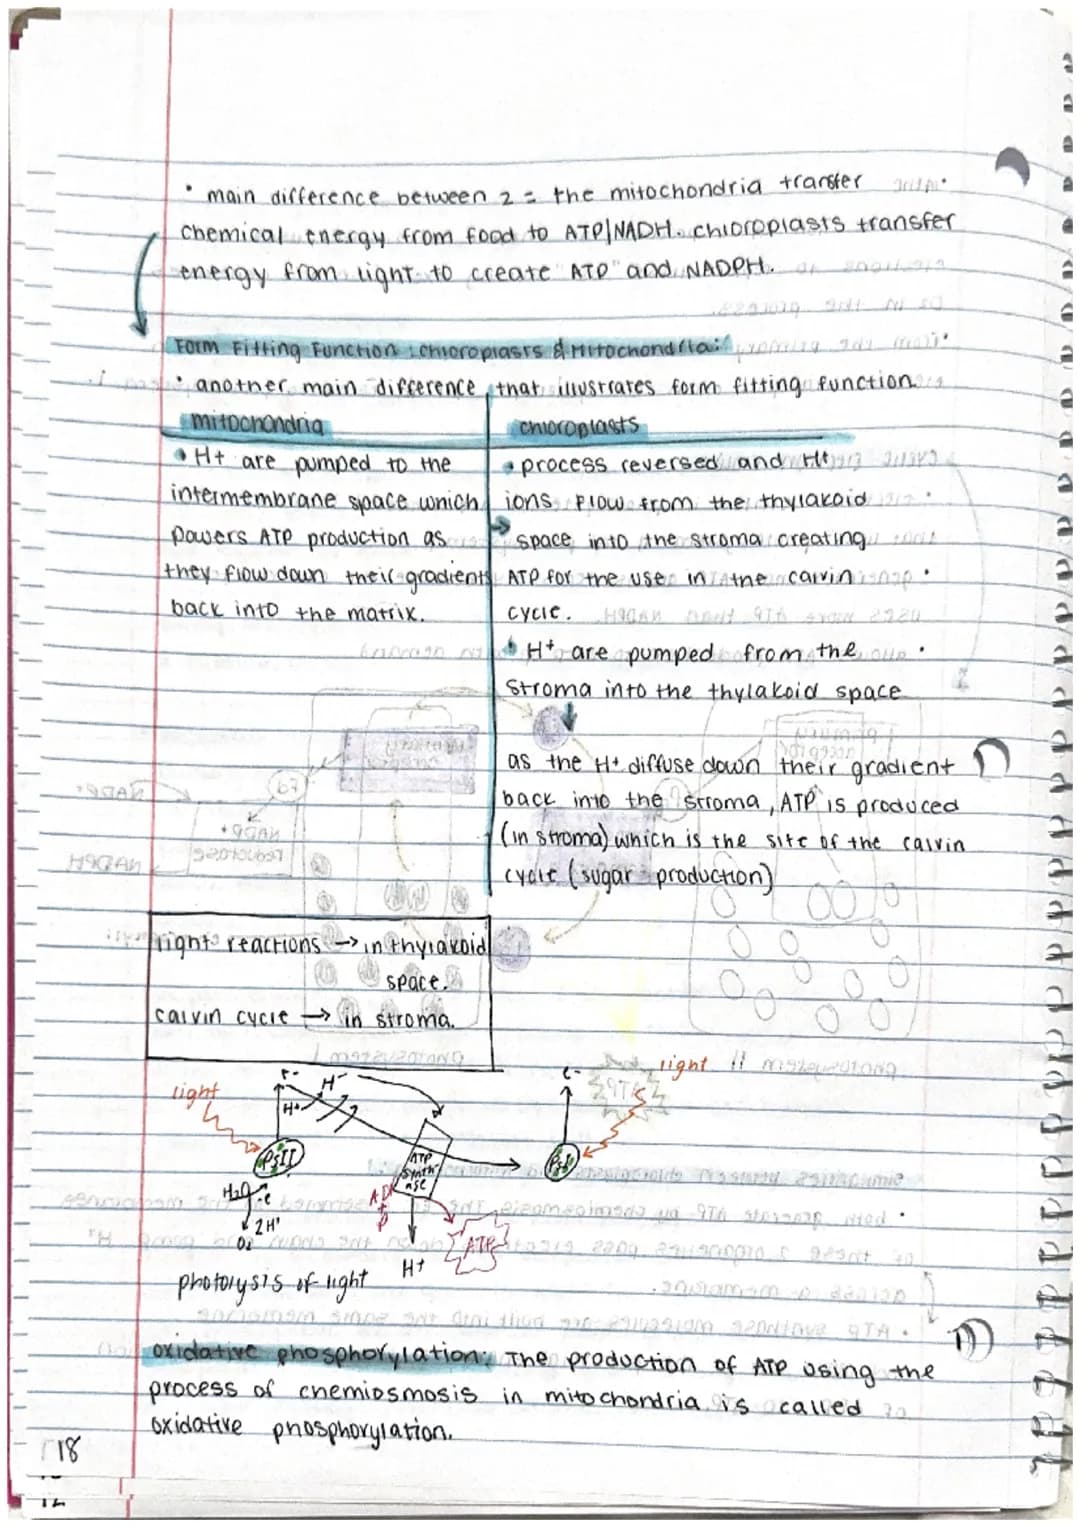 • main difference between 2 = the mitochondria transfer
chemical energy from food to ATP/NADH. chloroplasts transfer
energy from light to create ATP and NADPH.
Form Fitting Function : chloroplasts & Mitochondria:
• another main difference that illustrates form fitting function
mitochondria
• H+ are pumped to the
intermembrane space which
powers ATP production as
they flow down their gradients
back into the matrix.
chloroplasts
• process reversed and H+
ions flow from the thylakoid
→ space into the stroma creating
ATP for the use in the calvin
cycle.
• H+ are pumped from the
stroma into the thylakoid space
as the H+ diffuse down their gradient
back into the stroma, ATP is produced
(in stroma) which is the site of the calvin
cycle (sugar production)
light reactions → in thylakoid
space.
calvin cycle → in stroma.
light
e-
H-
H+
PSII
ATP
synth
ase
e-
light
PSI
H2O
-e
2H+
O2
H+
ATP
photolysis of light
oxidative phosphorylation: The production of ATP using the
process of chemiosmosis in mitochondria is called
oxidative phosphorylation.
18